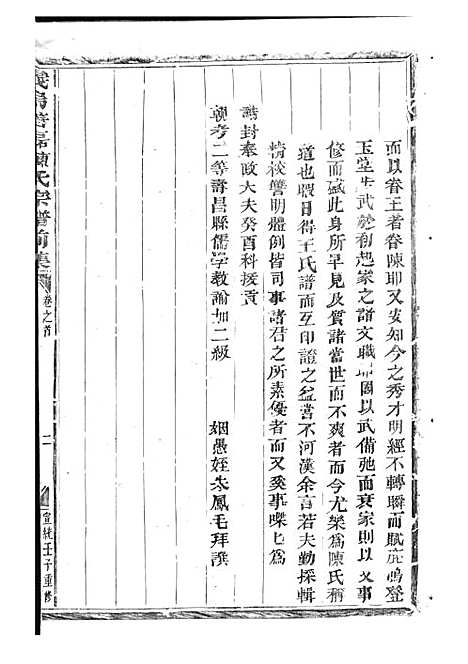 而以眷王者眷陳耶又安知今之秀才明經不轉瞬而賦鹿鳴登
玉堂生武於利起家之諸文職耶國以武備弛而衰家則以文事
修而盛此身所早見及質諸當世而不爽者而今尤樂為陳氏稱
道也暇日得王氏譜而互印證之益當不河漢余言若夫勤採輯
精校讐明體例皆司事諸君之所素優者而又奚事喋七為
誥封奉政大夫癸酉科拔貢
朝考二等壽昌縣儒學教諭加二級 姻愚姪朱鳳毛拜譔
陳氏宗譜前集 卷之首 二 宣統壬子重修